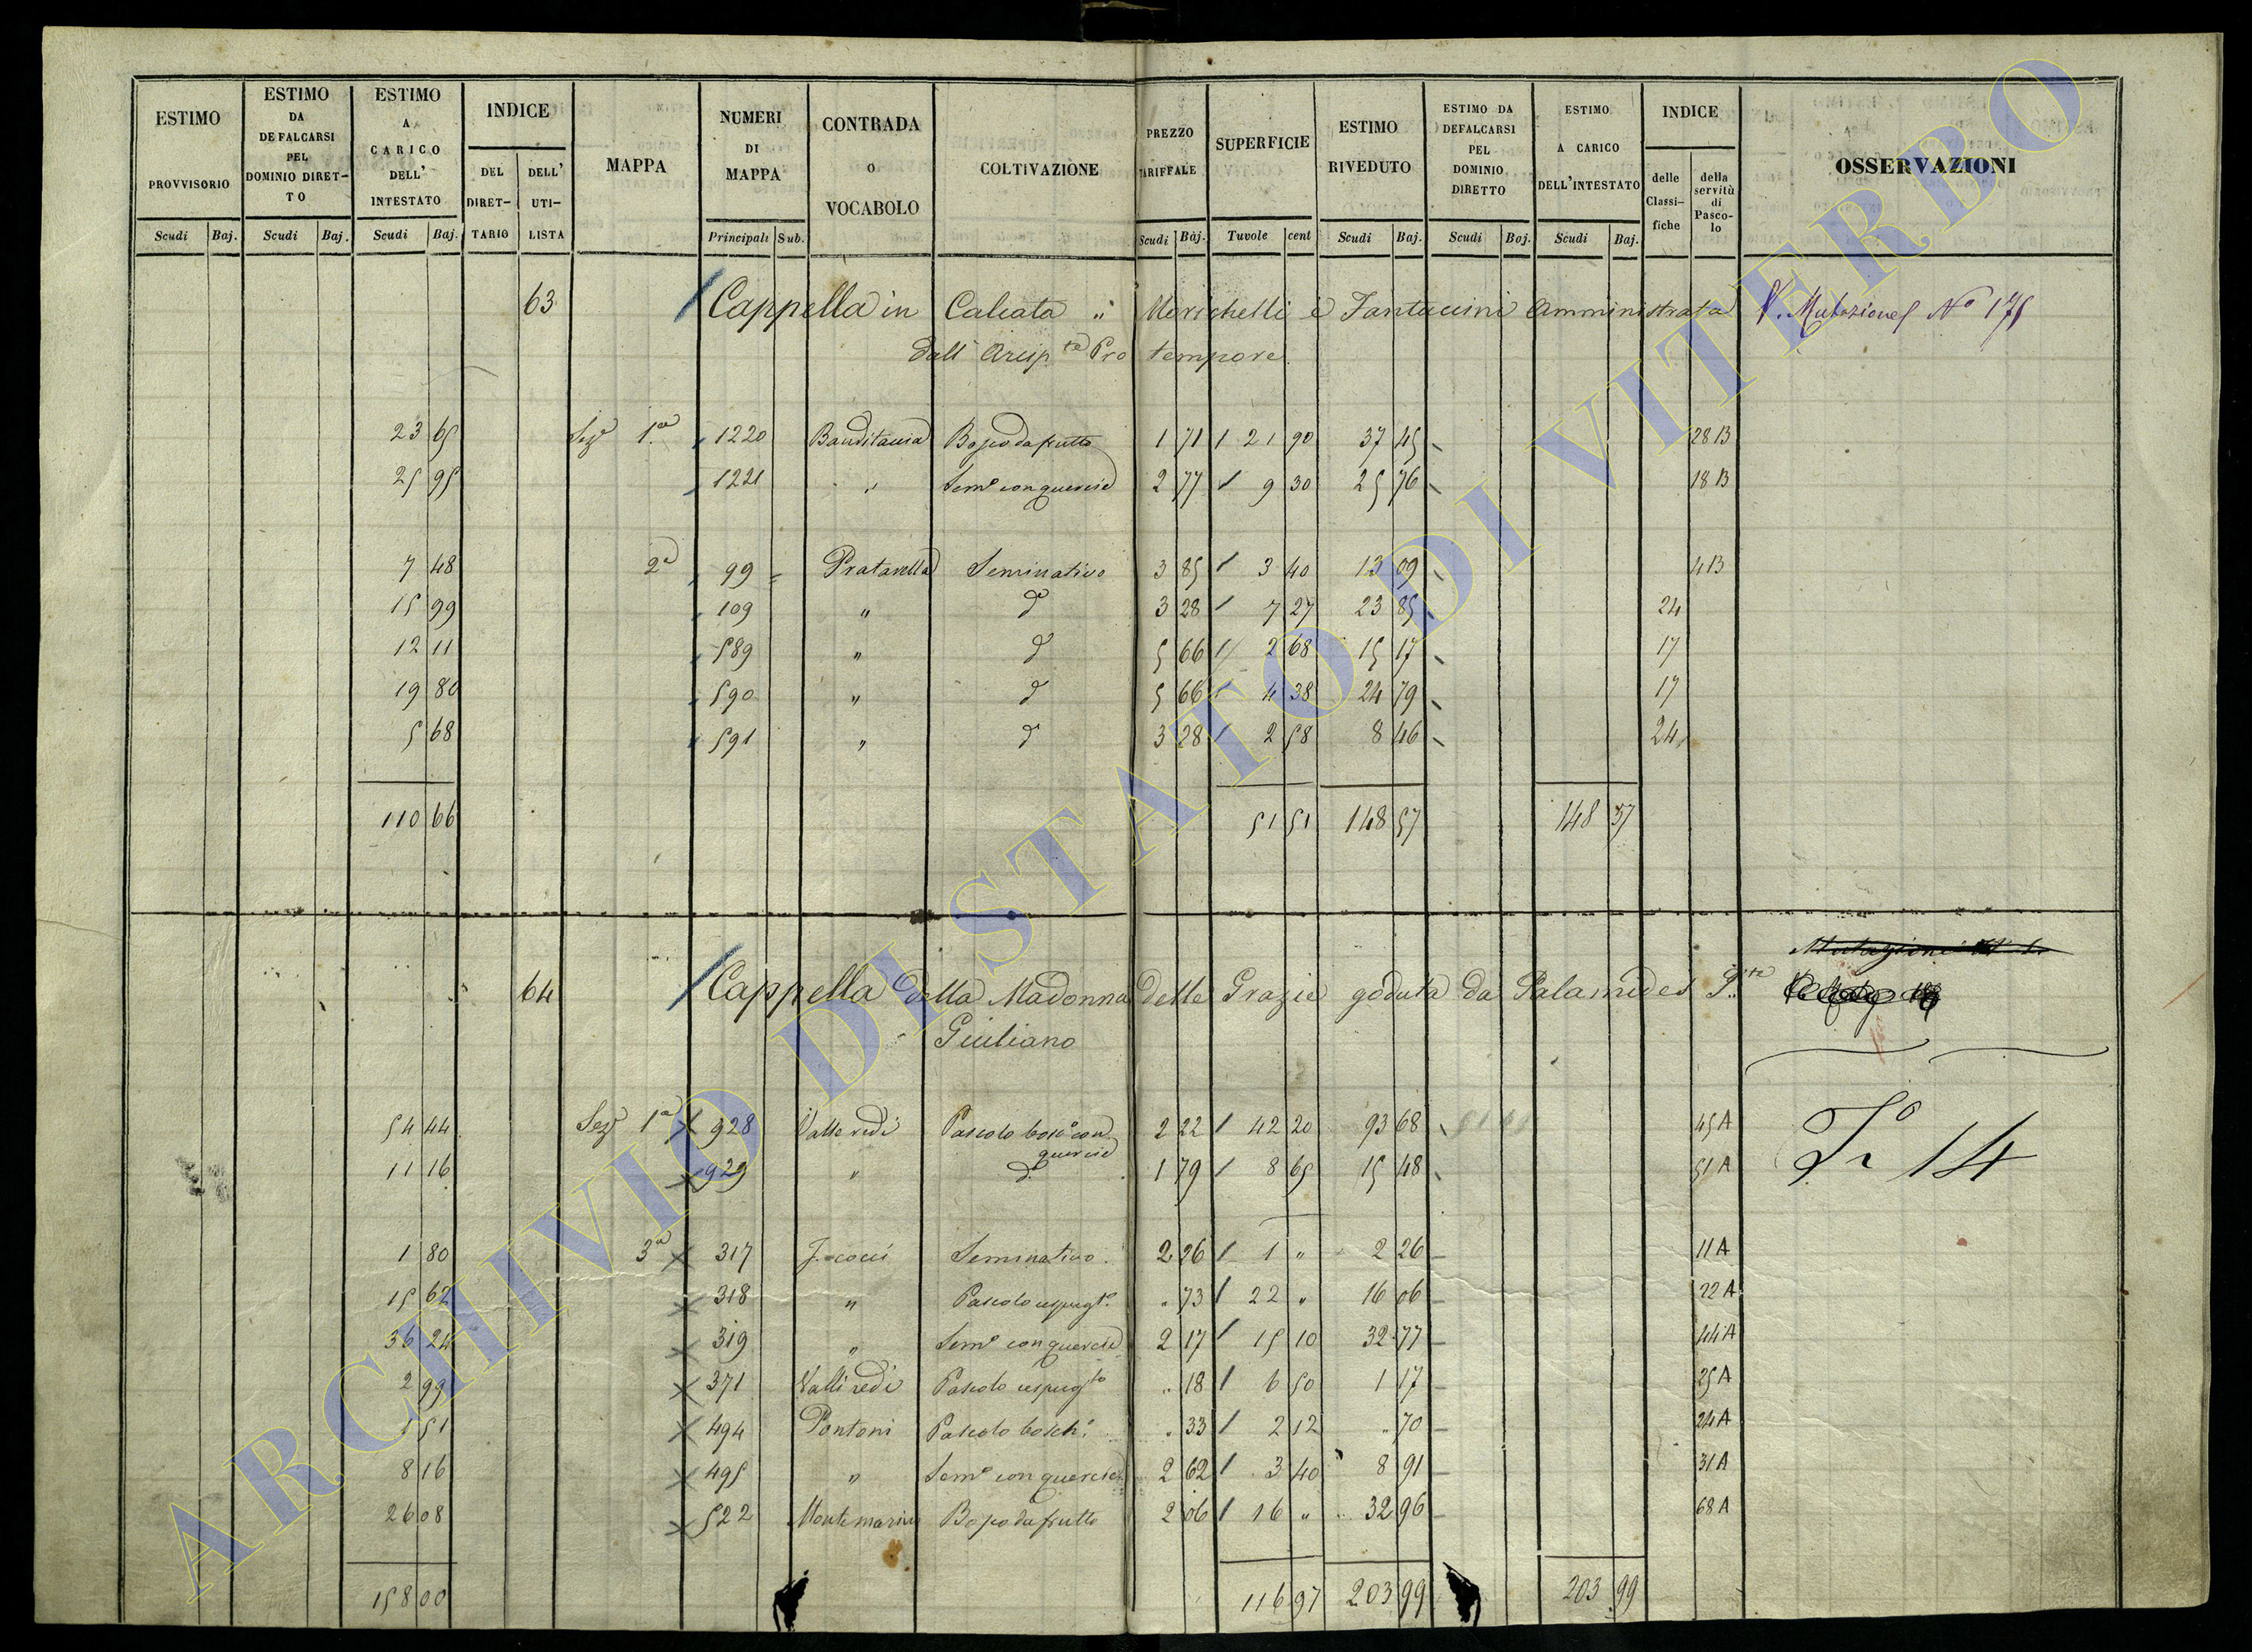 ESTIMO PROVVISORIO Scudi Baj.
ESTIMO DA DEFALCARSI PEL DOMINIO DIRET-TO Scudi Baj.
ESTIMO A CARICO DELL' INTESTATO Scudi Baj.
INDICE DEL DIRET-TARIO DELL' UTI-LISTA
MAPPA
NUMERI DI MAPPA Principali Sub.
CONTRADA O VOCABOLO
COLTIVAZIONE
PREZZO TARIFFALE Scudi Baj.
SUPERFICIE Tavole cent
ESTIMO RIVEDUTO Scudi Baj.
ESTIMO DA DEFALCARSI PEL DOMINIO DIRETTO Scudi Baj.
ESTIMO A CARICO DELL'INTESTATO Scudi Baj.
INDICE delle Classi-fiche della servitù di Pasco-lo
OSSERVAZIONI
63 Cappella in Calcata " Morichelli e Fantaccini Amministrata V. Mutazione N°
dall' Arcip.te Pro tempore
23 65 Sez.e 1.a 1220 Banditaccia Bosco da frutto 1 71 21 90 37 45 28 B
25 95 1221 " Sem.o con quercie 2 77 9 30 25 76 18 B
7 48 2.a 99 Pratarella Seminativo 3 85 3 40 13 09 4 B
15 99 109 " d.o 3 28 7 27 23 85 24
12 11 589 " d.o 5 66 2 68 15 17 17
19 80 590 " d.o 5 66 4 38 24 79 17
5 68 591 " d.o 3 28 2 58 8 46 24
110 66 51 51 148 57 148 57
64 Cappella della Madonna delle Grazie goduta da Palamides
Giuliano
54 44 Sez.e 1.a 928 Valle redi Pascolo bosc.o con quercie 2 22 42 20 93 68 45 A
11 16 929 " d.o 1 79 8 65 15 48 51 A
14
1 80 3.a 317 Seminativo 2 26 1 " 2 26 11 A
15 62 318 " Pascolo cespugt.o " 73 22 " 16 06 22 A
36 24 319 " Sem.o con quercie 2 17 15 10 32 77 44 A
2 99 371 Valli redi Pascolo cespug.to " 18 6 50 1 17 25 A
1 51 494 Pontoni Pascolo bosch.o " 33 2 12 " 70 24 A
8 16 495 " Sem.o con quercie 2 62 3 40 8 91 31 A
26 08 522 Bosco da frutto 2 06 16 " 32 96 68 A
158 00 116 97 203 99 203 99
ARCHIVIO DI STATO DI VITERBO